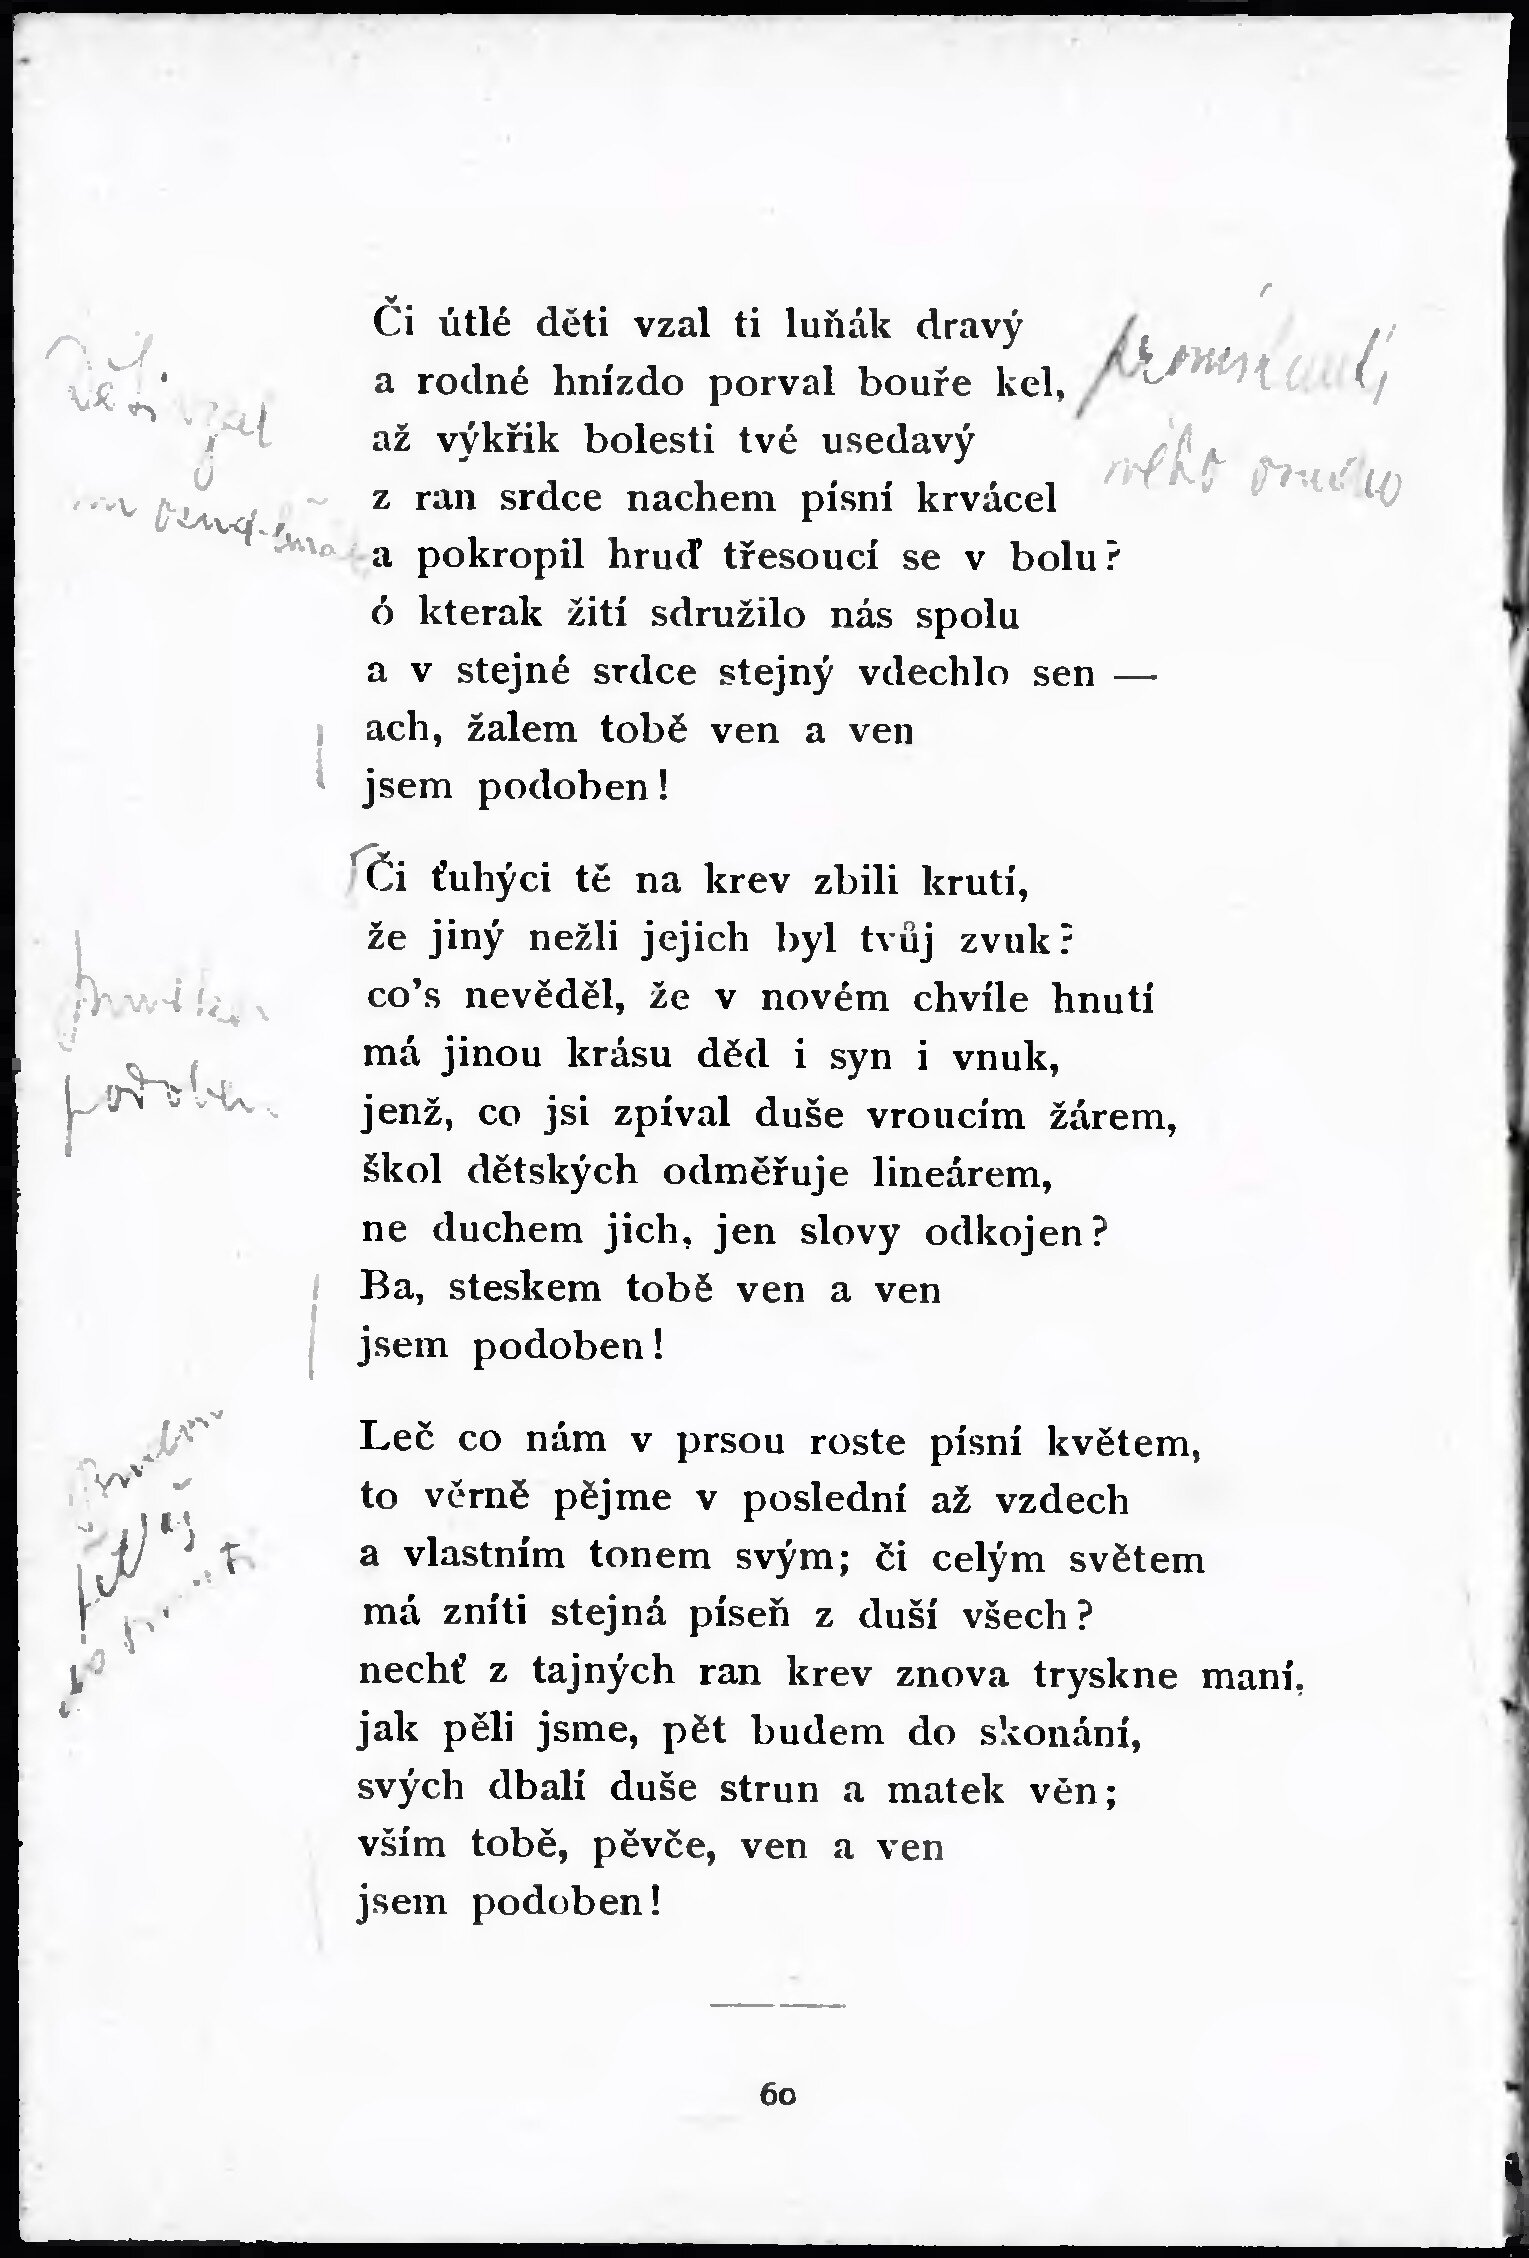 Či útlé děti vzal ti luňák dravý
a rodné hnízdo porval bouře kel,
až výkřik bolesti tvé usedavý
z ran srdce nachem písní krvácel
a pokropil hruď třesoucí se v bolu?
ó kterak žití sdružilo nás spolu
a v stejné srdce stejný vdechlo sen —
ach, žalem tobě ven a ven
jsem podoben!
Či ťuhýci tě na krev zbili krutí,
že jiný nežli jejich byl tvůj zvuk?
co's nevěděl, že v novém chvíle hnutí
má jinou krásu děd i syn i vnuk,
jenž, co jsi zpíval duše vroucím žárem,
škol dětských odměřuje lineárem,
ne duchem jich, jen slovy odkojen?
Ba, steskem tobě ven a ven
jsem podoben!
podoben
Leč co nám v prsou roste písní květem,
to věrně pějme v poslední až vzdech
a vlastním tonem svým; či celým světem
má zníti stejná píseň z duší všech?
nechť z tajných ran krev znova tryskne maní,
jak pěli jsme, pět budem do skonání,
svých dbalí duše strun a matek věn;
vším tobě, pěvče, ven a ven
jsem podoben!
60